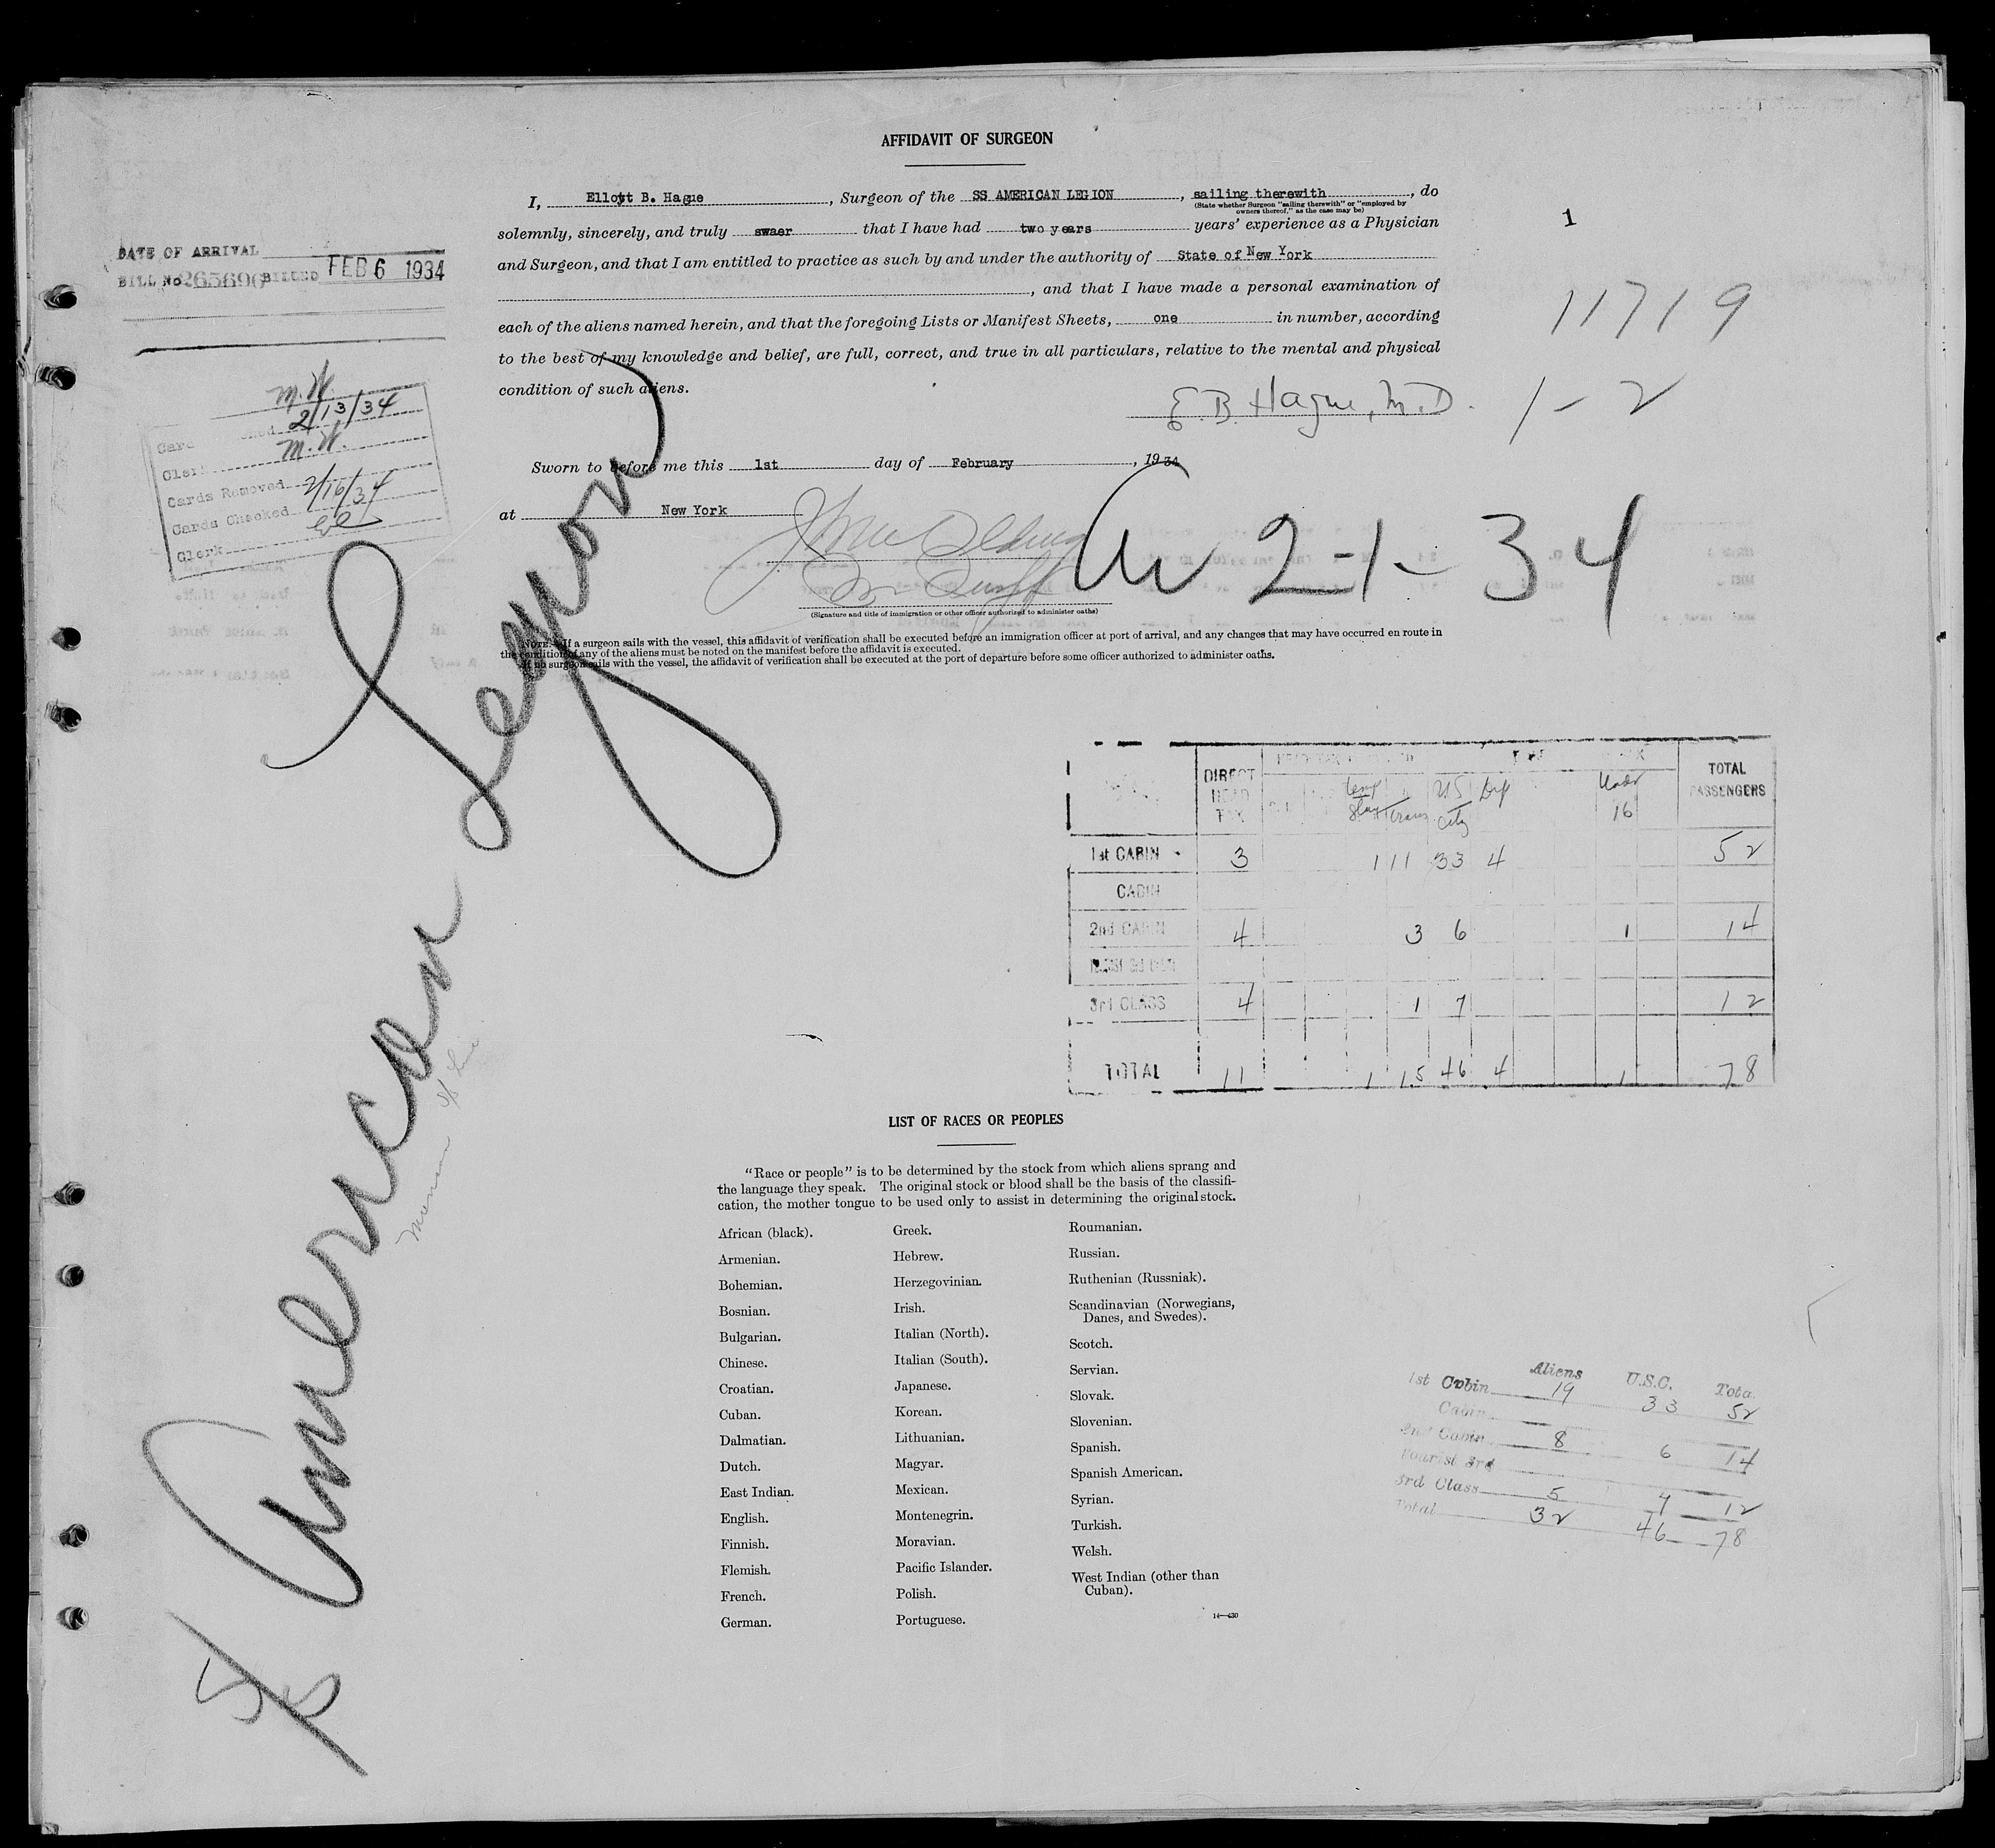 AFFIDAVIT OF SURGEON
I, Ellott B. Hague, Surgeon of the SS AMERICAN LEGION, sailing therewith, do
(State whether Surgeon "sailing therewith" or "employed by
owners thereof," as the case may be)
solemnly, sincerely, and truly swaer that I have had two years years' experience as a Physician
and Surgeon, and that I am entitled to practice as such by and under the authority of State of New York
, and that I have made a personal examination of
each of the aliens named herein, and that the foregoing Lists or Manifest Sheets, one in number, according
to the best of my knowledge and belief, are full, correct, and true in all particulars, relative to the mental and physical
condition of such aliens.
E. B. Hague, M.D.
Sworn to before me this 1st day of February, 1934
at New York
(Signature and title of immigration or other officer authorized to administer oaths)
NOTE.—If a surgeon sails with the vessel, this affidavit of verification shall be executed before an immigration officer at port of arrival, and any changes that may have occurred en route in
the condition of any of the aliens must be noted on the manifest before the affidavit is executed.
If no surgeon sails with the vessel, the affidavit of verification shall be executed at the port of departure before some officer authorized to administer oaths.
1
11719
1-2
Ar 2-1-34
DATE OF ARRIVAL
BILL No 265690 BILLED FEB 6 1934
M.W.
2/13/34
M.W.
Cards Removed 2/16/34
Cards Checked
Clerk
S/S American Legion
Munson S/S Line
DIRECT HEAD TAX temp stay Trans US City Dip Undr 16 TOTAL PASSENGERS
1st CABIN 3 1 11 33 4 52
CABIN
2nd CABIN 4 3 6 1 14
3rd CLASS 4 1 7 12
TOTAL 11 1 15 46 4 1 78
LIST OF RACES OR PEOPLES
"Race or people" is to be determined by the stock from which aliens sprang and
the language they speak. The original stock or blood shall be the basis of the classifi-
cation, the mother tongue to be used only to assist in determining the original stock.
African (black).
Armenian.
Bohemian.
Bosnian.
Bulgarian.
Chinese.
Croatian.
Cuban.
Dalmatian.
Dutch.
East Indian.
English.
Finnish.
Flemish.
French.
German.
Greek.
Hebrew.
Herzegovinian.
Irish.
Italian (North).
Italian (South).
Japanese.
Korean.
Lithuanian.
Magyar.
Mexican.
Montenegrin.
Moravian.
Pacific Islander.
Polish.
Portuguese.
Roumanian.
Russian.
Ruthenian (Russniak).
Scandinavian (Norwegians,
Danes, and Swedes).
Scotch.
Servian.
Slovak.
Slovenian.
Spanish.
Spanish American.
Syrian.
Turkish.
Welsh.
West Indian (other than
Cuban).
14—430
Aliens U.S.C. Total
1st Cabin 19 33 52
Cabin
2nd Cabin 8 6 14
Tourist 3rd
3rd Class 5 7 12
Total 32 46 78